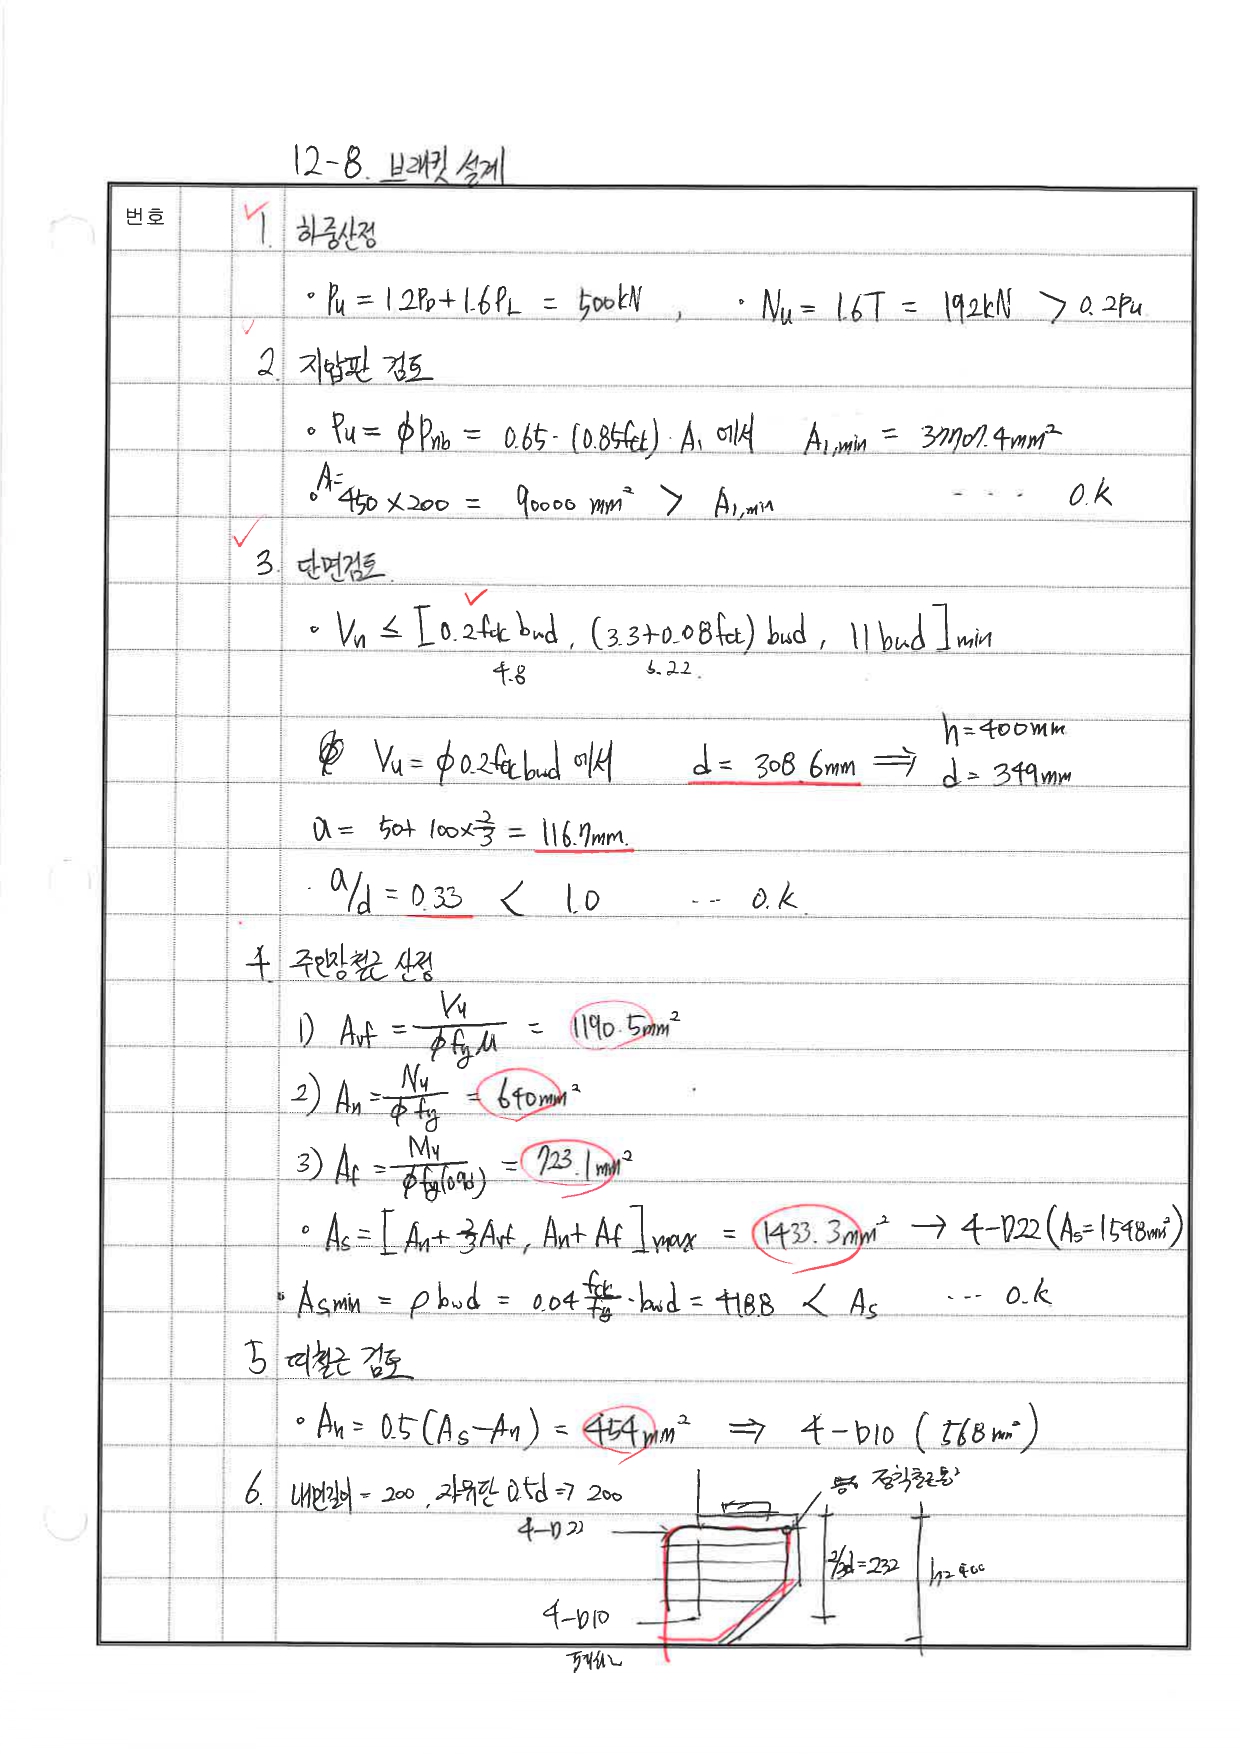 12-8. 브래킷 설계
번호
1. 하중산정
• Pu = 1.2PD + 1.6PL = 500kN , • Nu = 1.6T = 192kN > 0.2Pu
2. 지압판 검토
• Pu = ϕPnb = 0.65 · (0.85fck) · A1 에서 A1,min = 37707.4mm²
• A= 450 × 200 = 90000 mm² > A1,min --- O.K
3. 단면검토.
• Vn ≤ [0.2fck bwd, (3.3+0.08fck) bwd, 11bwd]min
4.8 5.22.
Vu = ϕ0.2fck bwd 에서 d = 308.6mm ⇒ h=400mm
d=349mm
a = 50+100×2/3 = 116.7mm.
· a/d = 0.33 < 1.0 --- O.K.
4 주인장철근 산정
1) Avf = Vu/ϕfyμ = 1190.5mm²
2) An = Nu/ϕfy = 640mm²
3) Af = Mu/ϕfy(0.9d) = 723.1mm²
• As = [An + 2/3Avf, An + Af]max = 1433.3mm² → 4-D22 (As=1548mm²)
• Asmin = ρbwd = 0.04 fck/fy · bwd = 418.8 < As --- O.K
5 띠철근 검토
• Ah = 0.5(As-An) = 454mm² ⇒ 4-D10 (568mm²)
6. 내민길이 = 200, 자유단 0.5d ⇒ 200
4-D22
2/3d=232
h=400
4-D10